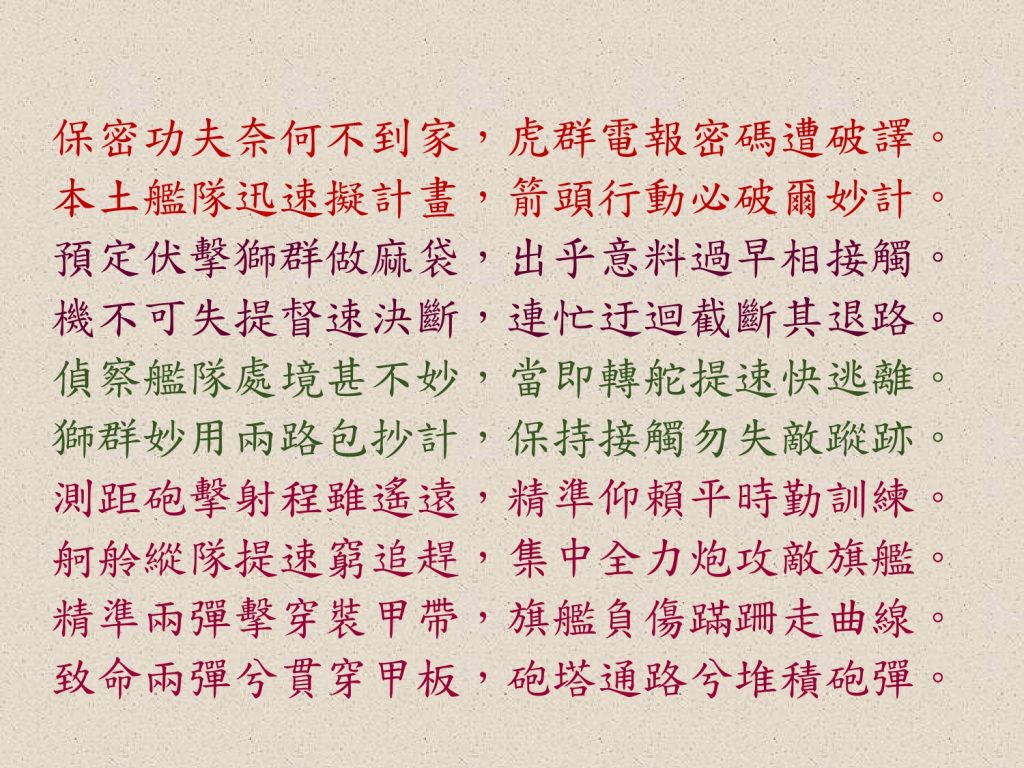 保密功夫奈何不到家，虎群電報密碼遭破譯。
本土艦隊迅速擬計畫，箭頭行動必破爾妙計。
預定伏擊獅群做麻袋，出乎意料過早相接觸。
機不可失提督速決斷，連忙迂迴截斷其退路。
偵察艦隊處境甚不妙，當即轉舵提速快逃離。
獅群妙用兩路包抄計，保持接觸勿失敵蹤跡。
測距砲擊射程雖遙遠，精準仰賴平時勤訓練。
舸舲縱隊提速窮追趕，集中全力炮攻敵旗艦。
精準兩彈擊穿裝甲帶，旗艦負傷蹣跚走曲線。
致命兩彈兮貫穿甲板，砲塔通路兮堆積砲彈。